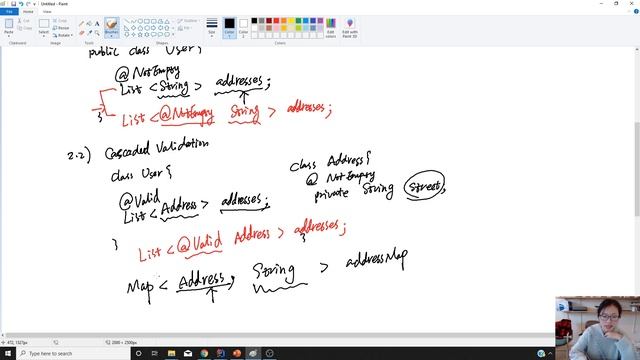 Untitled - Paint
File Home View
Paste
Select
Brushes
Shapes
Size
Color 1
Color 2
Edit colors
Edit with Paint 3D
Clipboard Image Tools Shapes Colors
public class User{
@NotEmpty
List <String> addresses;
List <@NotEmpty String> addresses;
2.2) Cascaded Validation
class User{
@Valid
List <Address> addresses;
}
class Address{
@NotEmpty
private String Street;
List <@Valid Address> addresses;
Map < Address, String > addressMap
472, 1327px
2080 × 2500px
Type here to search